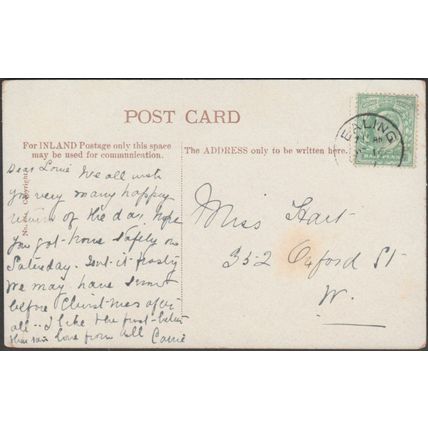 POST CARD
For INLAND Postage only this space
may be used for communication.
The ADDRESS only to be written here.
EALING
HALFPENNY
Dear Louie We all wish
you very many happy
returns of the day. Hope
you got home safely on
Saturday. Isn't it frosty
We may have some
before Christmas after
all.. I like the frost better
than rain love from all Carrie
Miss Hart
352 Oxford St
W.